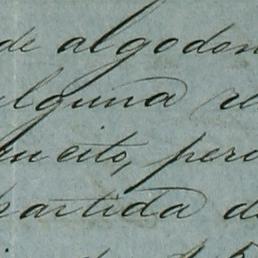 de algodon
alguna re
queito, pero
partida de